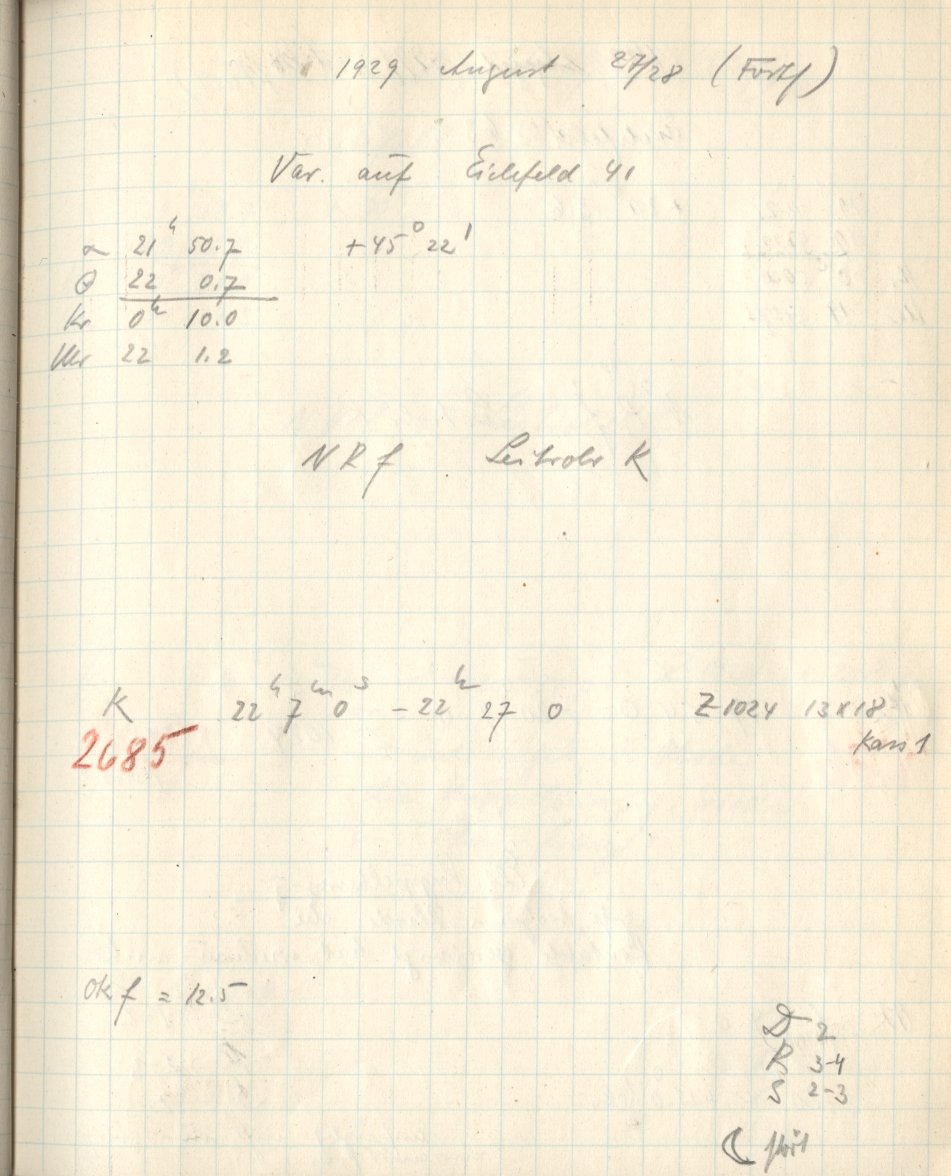 1929 August 27/28 (Fortf)
Var. auf Eichfeld 41
α 21ʰ 50.7 +45° 22'
Θ 22 0.7
Kr 0ʰ 10.0
Uhr 22 1.2
NRf Leitrohr K
K 22ʰ 7ᵐ 0ˢ - 22ʰ 27 0 Z 1024 13x18
2685 Kass 1
Okf = 12.5
D 2
R 3-4
S 2-3
☾ stört